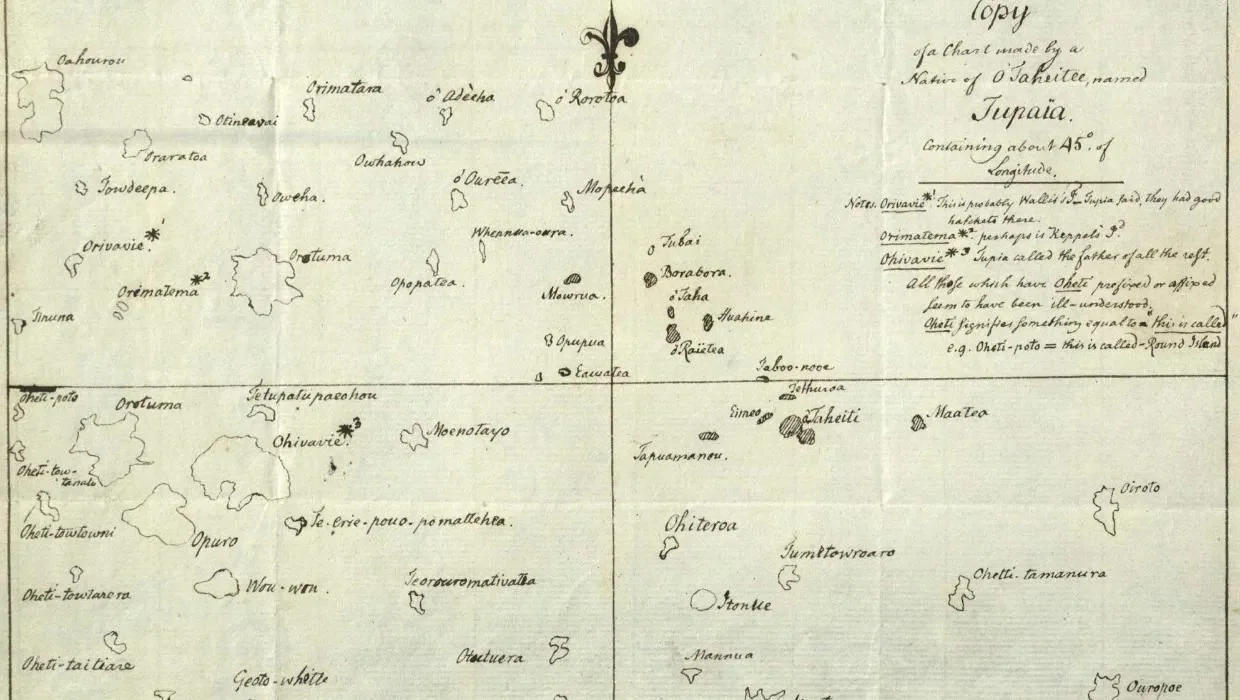 Copy
of a Chart made by a
Native of O'Taheitee, named
Tupaïa.
Containing about 45°. of
Longitude.
Notes. Orivavie *1. This is probably Wallis's Id_ Tupia said, they had good
hatchets there.
Orimatema *2 perhaps is Keppel's Id
Ohivavie *3 Tupia called the father of all the rest.
All those which have Oheti prefixed or affixed
seem to have been ill-understood.
Oheti signifies something equal to = "this is called"
e.g. Oheti-poto = this is called-Round Island
Oahourou
Orimatara
ô Adèeha
ó Rorotoa
Otineavai
Oraratoa
Owhahow
Towdeepa.
Oweha.
ó Oureea.
Mopeeha
Orivavie *1
Orotuma
Whennua-oura.
Tubai
Borabora.
Orematema *2
Opopatea.
Mowrua.
ó Taha
Huahine
Tinuna
Opupua
ó Raietea
Eawatea
Taboo-nooe
Tethuroa
Oheti-poto
Orotuma
Tetupatupaeohou
Eimeo
ó Taheiti
Maatea
Ohivavie *3
Moenotayo
Tapuamanou.
Oheti-tow-
Oiroto
Oheti-towtowni
Opuro
Te-Erie-pouo-pomattehea.
Ohiteroa
Tumetowroaro
Oheti-towtarera
Wou-wou.
Teorouromativatea
Itonue
Ohetti-tamanura
Oheti-taitiare
Otootuera
Mannua
Geoto-white
Ouropoe